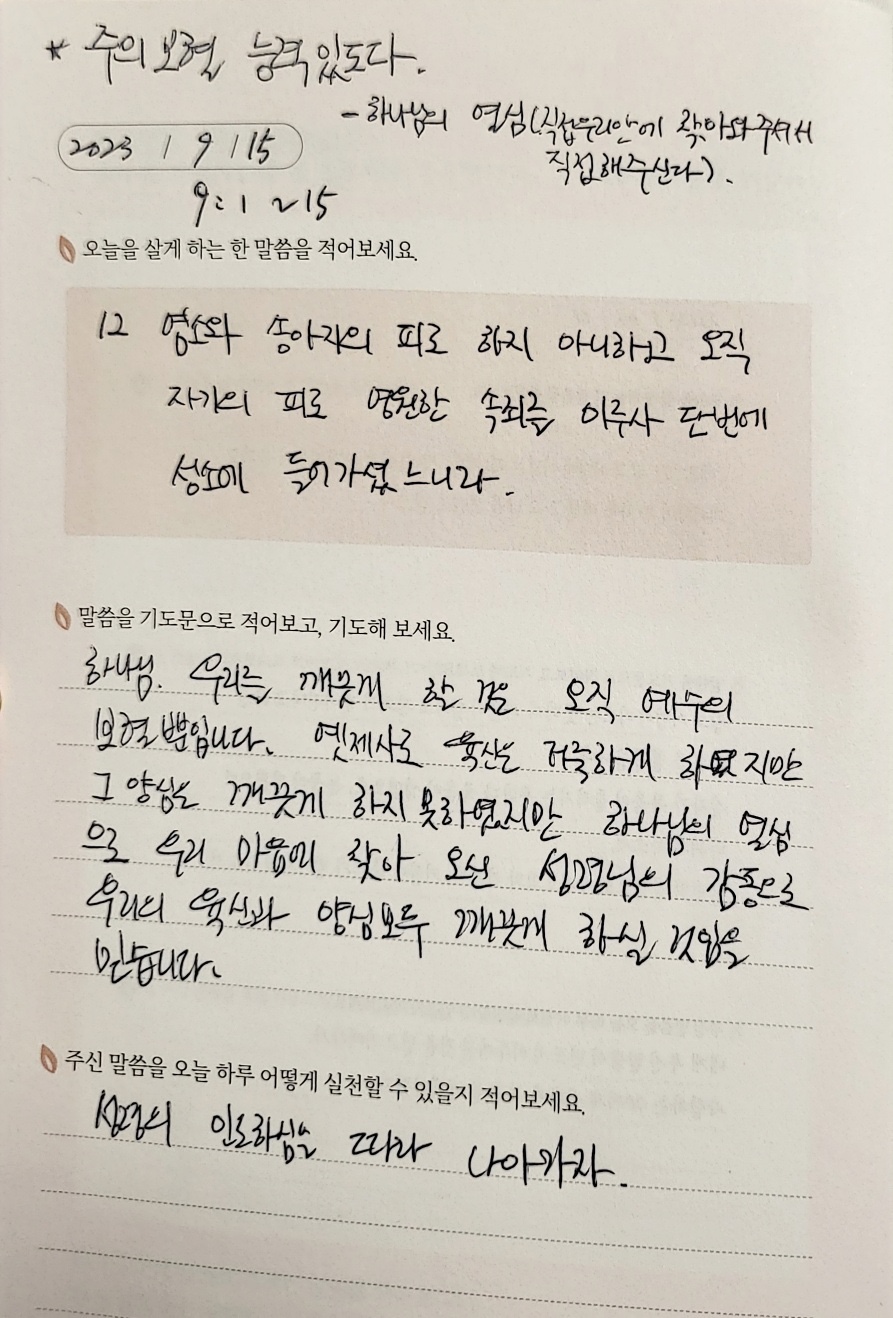 * 주의 보혈 능력있도다.
- 하나님의 열심(직접우리안에 찾아와주셔서
직접해주신다).
2023 / 9 / 15
9:1~15
오늘을 살게 하는 한 말씀을 적어보세요.
12 염소와 송아지의 피로 하지 아니하고 오직
자기의 피로 영원한 속죄를 이루사 단번에
성소에 들어가셨느니라.
말씀을 기도문으로 적어보고, 기도해 보세요.
하나님. 우리를 깨끗게 할 것은 오직 예수의
보혈뿐입니다. 옛제사로 육신은 거룩하게 하였지만
그 양심은 깨끗게 하지 못하였지만 하나님의 열심
으로 우리 마음에 찾아 오신 성령님의 감동으로
우리의 육신과 양심모두 깨끗게 하실 것임을
믿습니다.
주신 말씀을 오늘 하루 어떻게 실천할 수 있을지 적어보세요.
성령의 인도하심을 따라 나아가자.